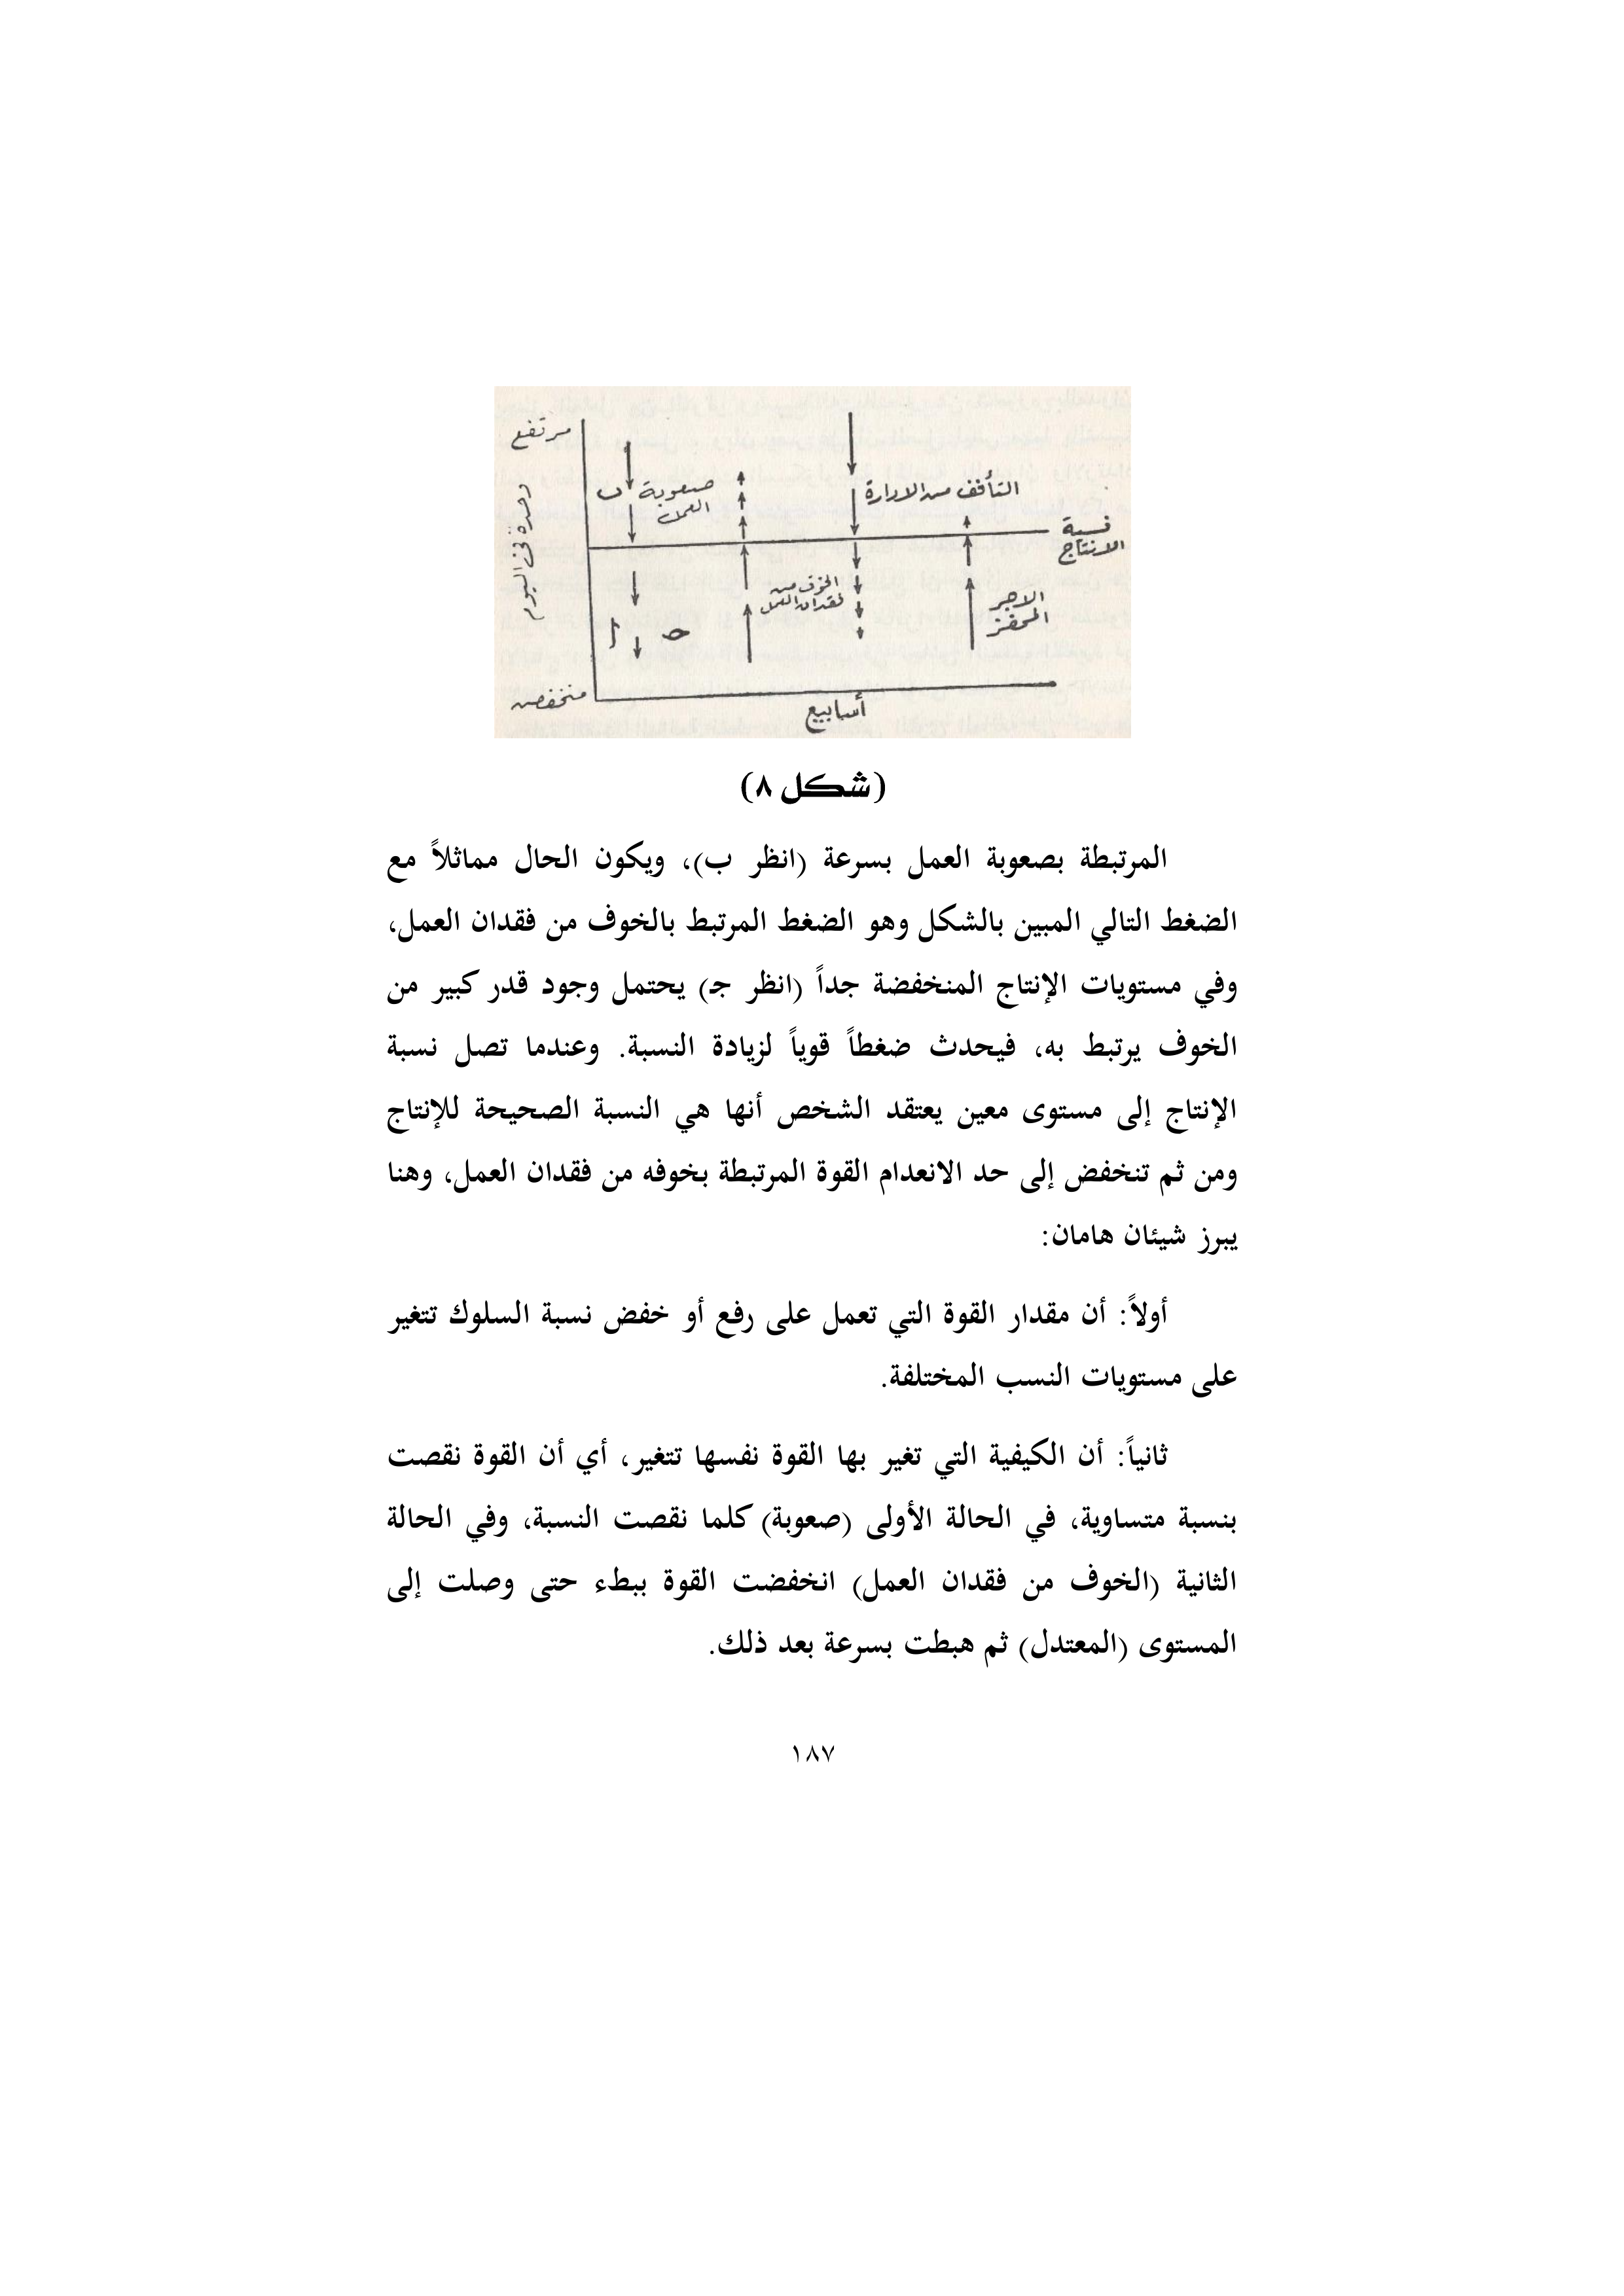 مرتفع
وحدة في اليوم
ب
صعوبة
العمل
التأفف من الادارة
نسبة
الانتاج
الخوف من
فقدان العمل
الاجر
المحفز
أ
حـ
منخفض
أسابيع
(شكل ٨)
المرتبطة بصعوبة العمل بسرعة (انظر ب)، ويكون الحال مماثلاً مع
الضغط التالي المبين بالشكل وهو الضغط المرتبط بالخوف من فقدان العمل،
وفي مستويات الإنتاج المنخفضة جداً (انظر جـ) يحتمل وجود قدر كبير من
الخوف يرتبط به، فيحدث ضغطاً قوياً لزيادة النسبة. وعندما تصل نسبة
الإنتاج إلى مستوى معين يعتقد الشخص أنها هي النسبة الصحيحة للإنتاج
ومن ثم تنخفض إلى حد الانعدام القوة المرتبطة بخوفه من فقدان العمل، وهنا
يبرز شيئان هامان:
أولاً: أن مقدار القوة التي تعمل على رفع أو خفض نسبة السلوك تتغير
على مستويات النسب المختلفة.
ثانياً: أن الكيفية التي تغير بها القوة نفسها تتغير، أي أن القوة نقصت
بنسبة متساوية، في الحالة الأولى (صعوبة) كلما نقصت النسبة، وفي الحالة
الثانية (الخوف من فقدان العمل) انخفضت القوة ببطء حتى وصلت إلى
المستوى (المعتدل) ثم هبطت بسرعة بعد ذلك.
١٨٧